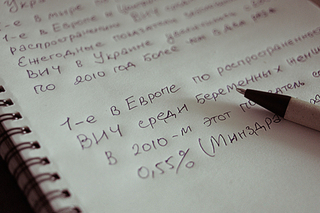 в мире
1-е в Европе и
распространению ВИЧ
Ежегодные показатели
ВИЧ в Украине
по 2010 год более чем в два раза
1-е в Европе по распространению
ВИЧ среди беременных женщин
В 2010-м этот показатель
0,55% (Минздрав